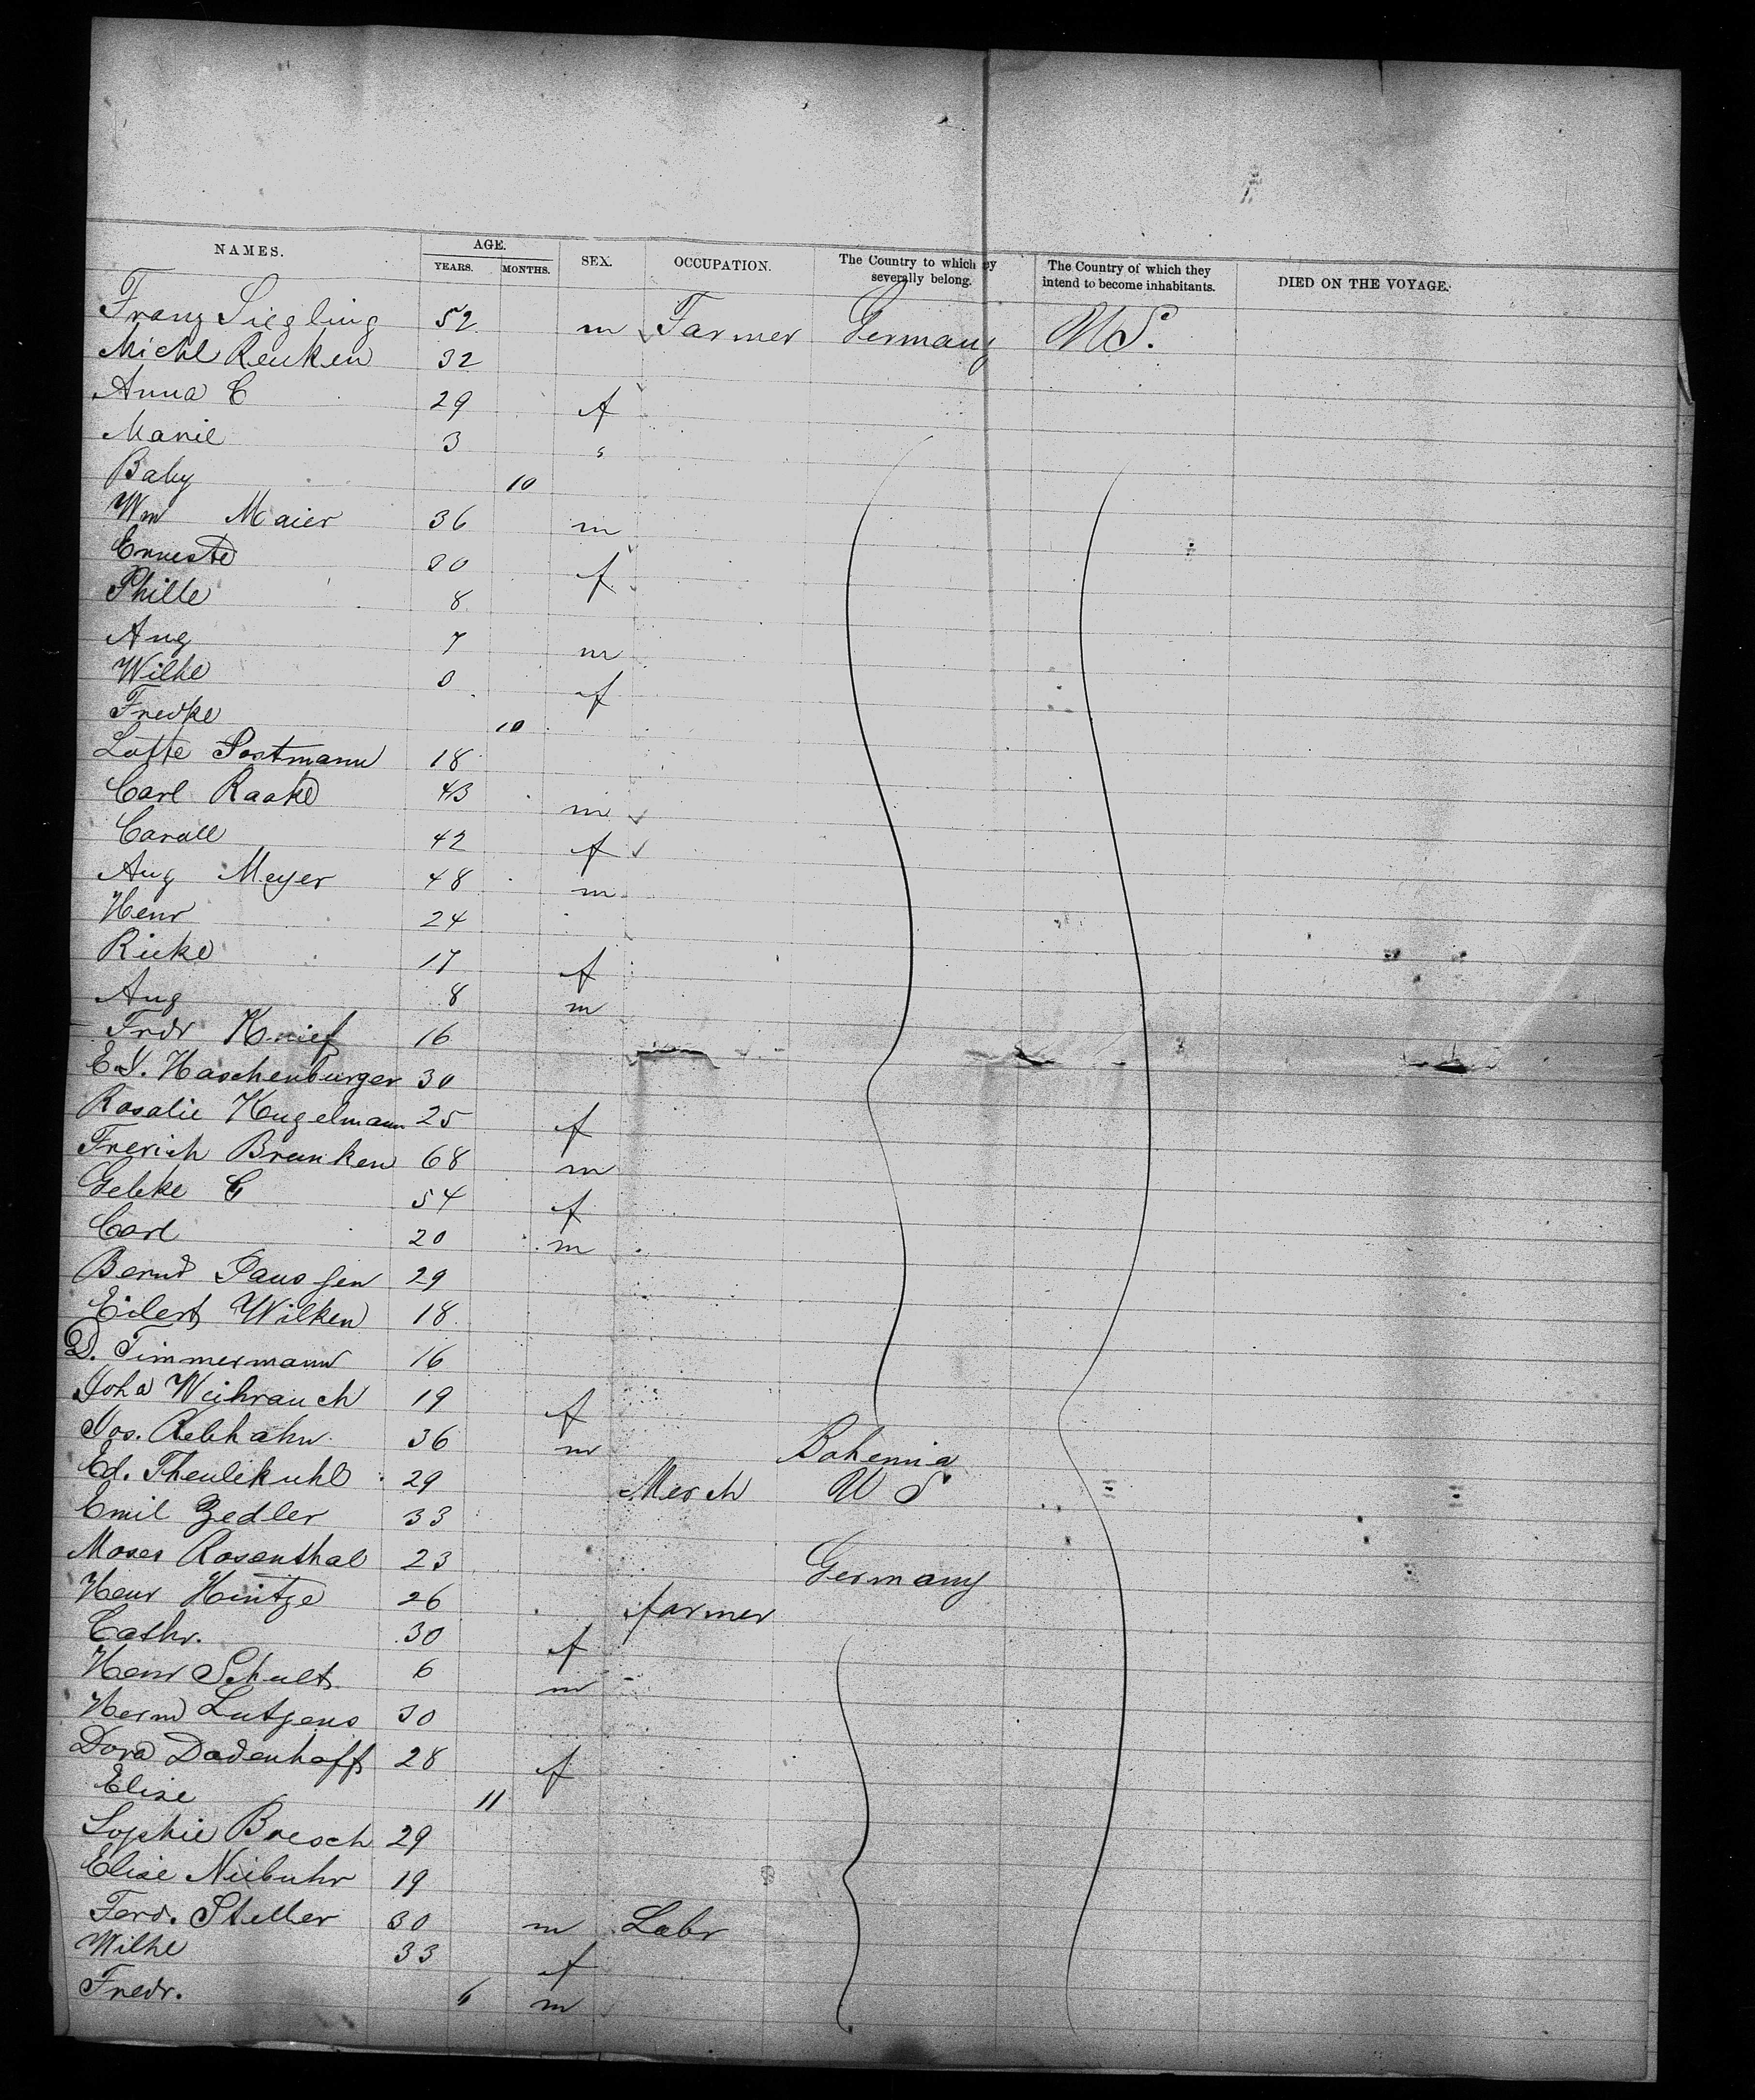 NAMES. AGE. SEX. OCCUPATION. The Country to which they severally belong. The Country of which they intend to become inhabitants. DIED ON THE VOYAGE.
YEARS. MONTHS.
Franz Siegling 52 m Farmer Germany US.
Michl Renken 32
Anna C 29 f
Marie 3 "
Baby 10
Wm Maier 36 m
Erneste 30 f
Phille 8
Aug 7 m
Wilhe f
Fredke 10
Lotte Postmann 18
Carl Raake 43 m
Caroll 42 f
Aug Meyer 48 m
Henr 24
Ricke 17 f
Aug 8 m
Frdr Knief 16
E. Haschenburger 30
Rosalie Kugelmann 25 f
Frerich Brunken 68 m
Gebke G 54 f
Carl 20 m
Bernd Janssen 29
Eilert Wilken 18
D. Timmermann 16
Joha Weihrauch 19 f
Jos. Rebhahn 36 m Bohemia
Ed. Theulekuhl 29 Merch U S
Emil Zedler 33
Moses Rosenthal 23 Germany
Henr Hintze 26 farmer
Cathr. 30 f
Henr Schult 6 m
Herm Lutgens 30
Dora Dodenhoff 28 f
Elise 11
Sophie Bresch 29
Elise Niebuhr 19
Ferd. Steller 30 m Labr
Wilhe 33 f
Fredr. 6 m